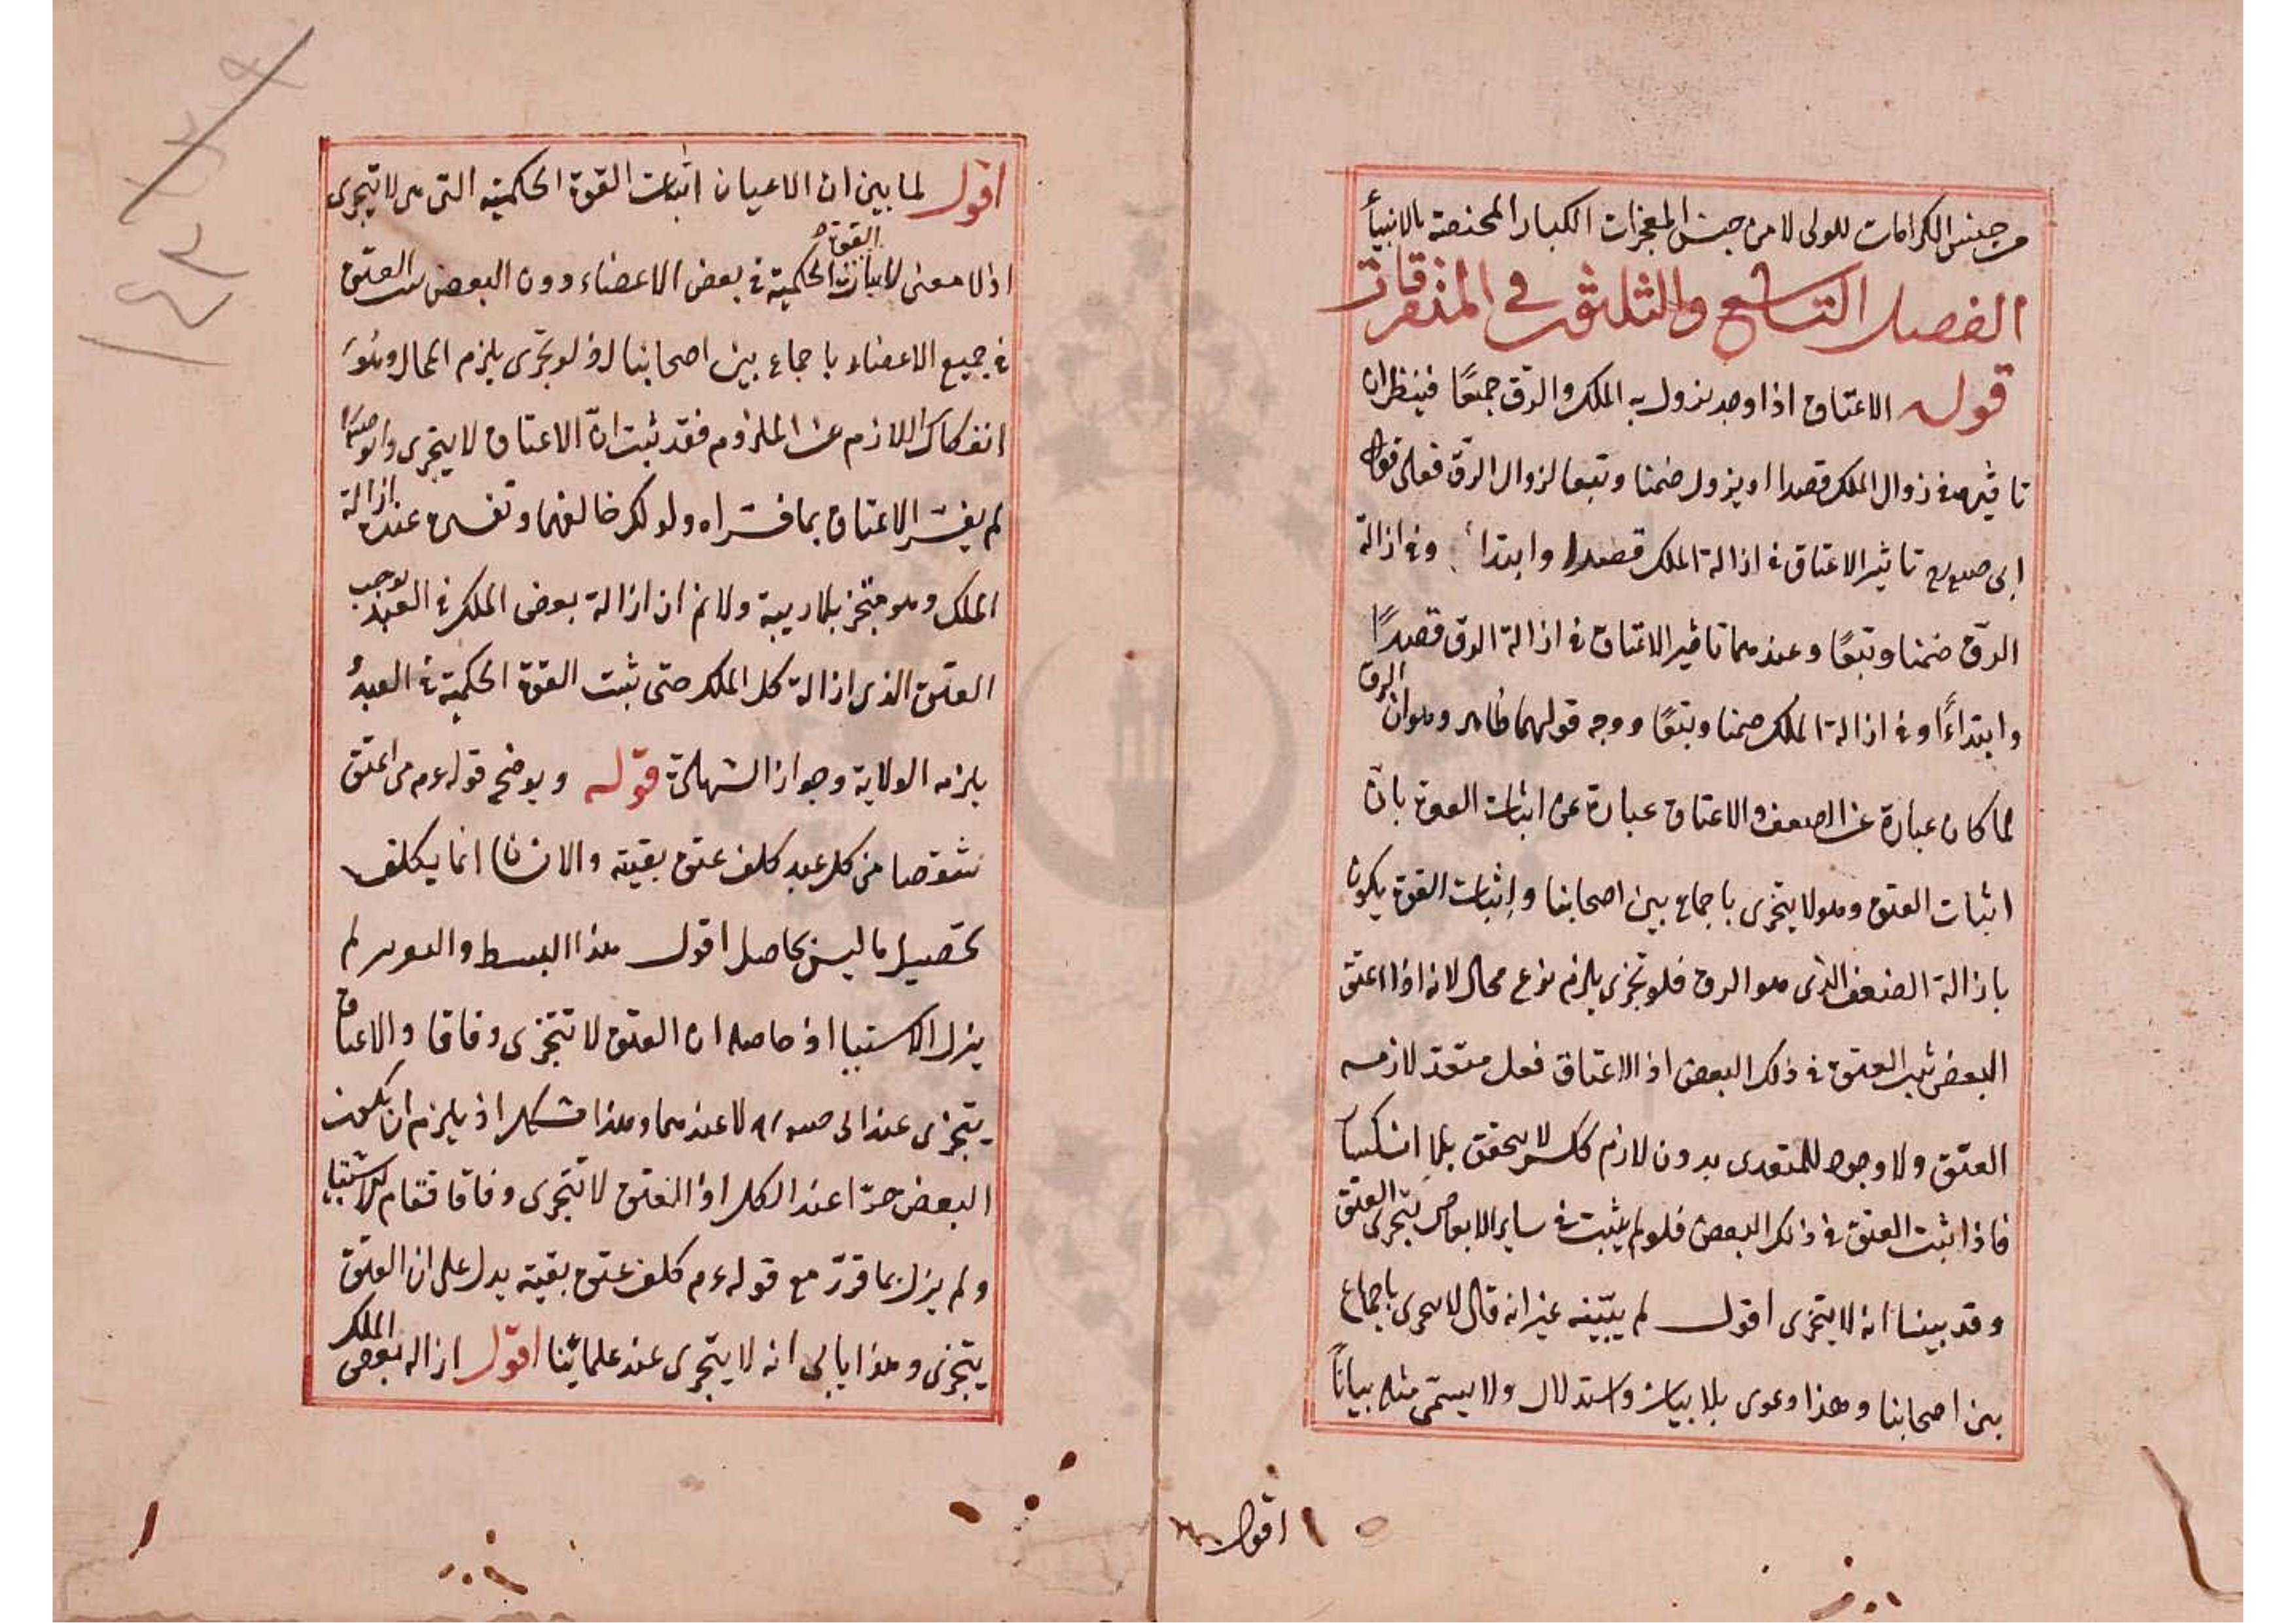 من جنس الكرامات للولى لا من جنس المعجزات الكبار المختصة بالانبيأ
الفصل التاسع والثلثون في المتفرقات
قوله الاعتاق اذا وجد يزول به الملك والرق جميعًا فينظر ان
تاثيره فى زوال الملك قصدا او يزول ضمنا وتبعا لزوال الرق فعلى قول
ابى تاثير الاعتاق فى ازالة الملك قصدا وابتداء وفى ازالة
الرق ضمنا وتبعًا وعندهما تاثير الاعتاق فى ازالة الرق قصدًا
وابتداءً وفى ازالة الملك ضمنا وتبعًا ووجه قولهما ظاهر وهو ان الرق
لما كان عبارة عن الضعف والاعتاق عبارة عن اثبات القوة بان
اثبات العتق وهو لا يتجزى باجماع بين اصحابنا واثبات القوة يكون
بازالة الضعف الذى هو الرق فلو تجزى يلزم نوع محال لانه اذا اعتق
البعض ثبت العتق فى ذلك البعض اذ الاعتاق فعل متعد لازمه
العتق ولا وجود للمتعدى بدون لازم كالكسر لا يتحقق بلا انكسار
فاذا ثبت العتق فى ذلك البعض فلو لم يثبت فى ساير الابعاض يتجزى العتق
وقد بينا انه لا يتجزى اقول لم يبينه غير انه قال لا يتجزى باجماع
بين اصحابنا وهذا دعوى بلا بيان واستدلال ولا يسمى مثله بيانًا
اقول
اقول لما بين ان الاعيان اثبات القوة الحكمية التى هى لا يتجزى
اذ لا معنى لاثبات القوة الحكمية فى بعض الاعضاء دون البعض العتق
فى جميع الاعضاء باجماع بين اصحابنا اذ لو تجزى يلزم المحال وهو
انفكاك اللازم عن الملزوم فقد ثبت انّ الاعتاق لا يتجزى وابو
لم يفسر الاعتاق بما فسراه ولو لكر خالفهما وتفسيره عنده ازالة
الملك وهو متجز بلا ريبة ولا نم ان ازالة بعض الملك فى العبد يوجب
العتق الذى ازالة كل الملك حتى ثبت القوة الحكمية فى العبد
يلزمه الولاية وجواز الشهادة قوله ويوضح قوله عم من اعتق
شقصا من كل عبد كلف عتق بقيته والانسان انما يكلف
تحصيل ما ليس بحاصل اقول هذا البسط لم
يزل الاشتباه اذ حاصله ان العتق لا تتجزى وفاقا والاعتاق
يتجزى عند ابى لا عندهما وهذا مشكل اذ يلزم ان يكون
البعض حرّا عند الكل اذ العتق لا تتجزى وفاقا فقام الاشتباه
ولم يزل بما قرر مع قوله عم كلف عتق بقيته يدل على ان العتق
يتجزى وهذا يابى انه لا يتجزى عند علمائنا اقول ازاله بعض الملك